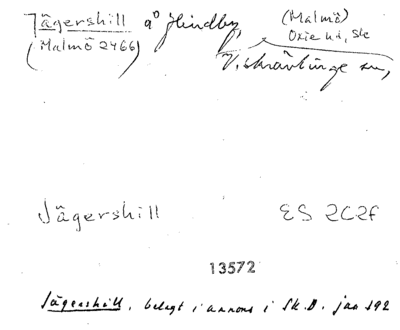 Jägershill å Hindby, (Malmö)
(Malmö 2466) Oxie hd, Sk
V. Skrävlinge sn,
Jägershill ES 2C2f
13572
Jägershill, belagt i annons i Sk.D. jan 192